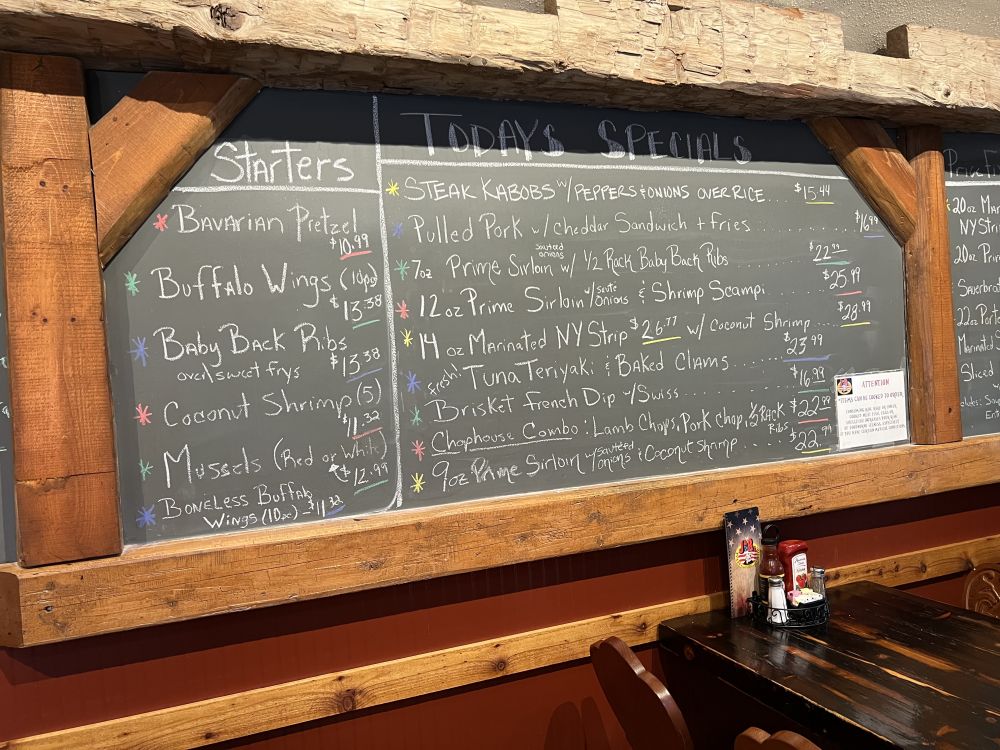 Starters
* Bavarian Pretzel
$10.99
* Buffalo Wings (10pc)
$13.38
* Baby Back Ribs
over sweet frys $13.38
* Coconut Shrimp (5)
$11.32
* Mussels (Red or White)
$12.99
* Boneless Buffalo
Wings (10pc) - $11.32
Today's Specials
* Steak Kabobs w/ Peppers & Onions over Rice... $15.44
* Pulled Pork w/ Cheddar Sandwich + Fries... $16.99
* 7oz Prime Sirloin w/ sauteed onions 1/2 Rack Baby Back Ribs... $22.99
* 12oz Prime Sirloin w/ saute onions & Shrimp Scampi... $25.99
* 14 oz Marinated NY Strip $26.77 w/ Coconut Shrimp... $28.99
* Fresh! Tuna Teriyaki & Baked Clams... $23.99
* Brisket French Dip w/ Swiss... $16.99
* Chophouse Combo: Lamb Chops, Pork Chop, 1/2 Rack Ribs... $22.99
* 9oz Prime Sirloin w/ Sauteed Onions & Coconut Shrimp... $22.99
ATTENTION
20oz
NY Strip
20oz
22oz
Sliced